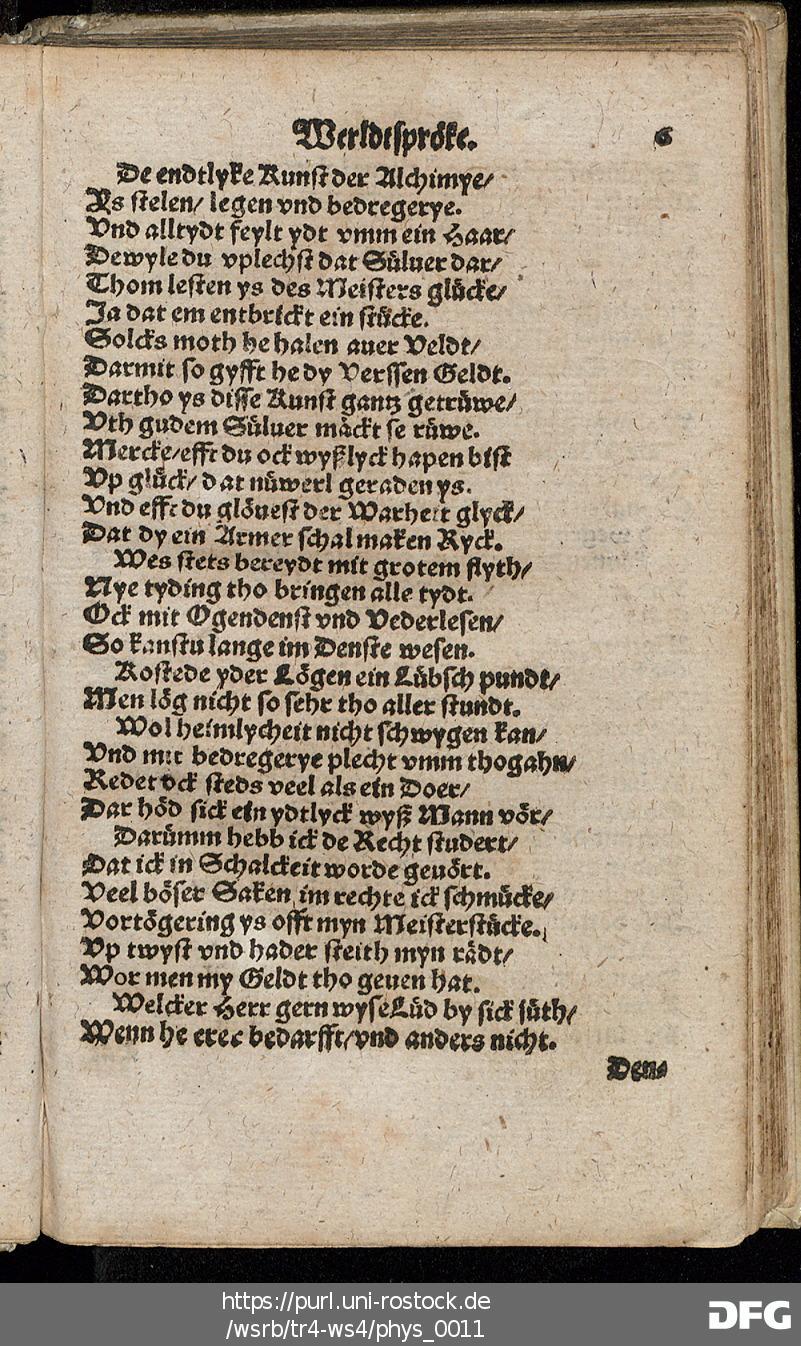 Werldtspröke. 6
De endtlyke Kunst der Alchimye/
Ys stelen/ legen vnd bedregerye.
Vnd alltydt feylt ydt vmm ein Haar/
Dewyle du vplechst dat Süluer dar/
Thom lesten ys des Meisters glücke/
Ja dat em entbrickt ein stücke.
Solcks moth he halen auer Veldt/
Darmit so gyfft he dy Verssen Geldt.
Dartho ys disse Kunst gantz getrüwe/
Vth gudem Süluer mäckt se rüwe.
Mercke/efft du ock wyßlyck hapen bist
Vp glück/ dat nüwerl geraden ys.
Vnd efft du glöuest der Warheit glyck/
Dat dy ein Armer schal maken Ryck.
Wes stets bereydt mit grotem flyth/
Nye tyding tho bringen alle tydt.
Ock mit Ogendenst vnd Vederlesen/
So kanstu lange im Denste wesen.
Kostede yder Lögen ein Lübsch pundt/
Men lög nicht so sehr tho aller stundt.
Wol heimlycheit nicht schwygen kan/
Vnd mit bedregerye plecht vmm thogahn/
Redet ock steds veel als ein Doer/
Dar höd sick ein ydtlyck wyß Mann vör/
Darümm hebb ick de Recht studert/
Dat ick in Schalckeit worde geuört.
Veel böser Saken im rechte ick schmücke/
Vortögering ys offt myn Meisterstücke.
Vp twyst vnd hader steith myn rädt/
Wor men my Geldt tho geuen hat.
Welcker Herr gern wyse Lüd by sick süth/
Wenn he erer bedarfft/vnd anders nicht.
Den-
https://purl.uni-rostock.de
/wsrb/tr4-ws4/phys_0011
DFG